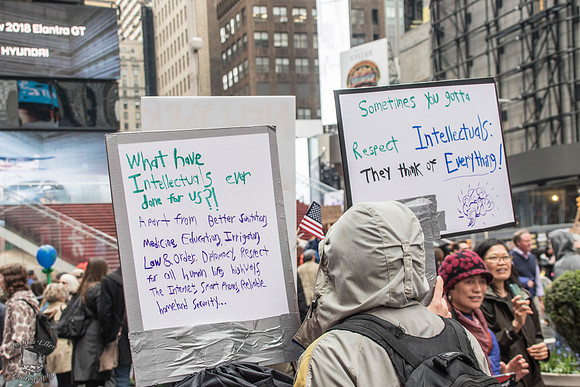 2018 Elantra GT
HYUNDAI
What have
Intellectuals ever
done for us?!
Apart from Better Sanitation
Medicine, Education, Irrigation,
Law & Order, Diplomacy, Respect
for all human life, highways,
The Internet, Smart Phones, Reliable
homeland security...
Sometimes you gotta
Respect Intellectuals:
They think of Everything!